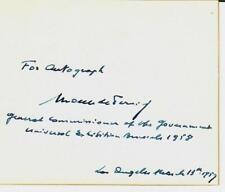 For Autograph
general Commissioner of the Government
Universal Exhibition Brussels 1958
Los Angeles March 18th 1957